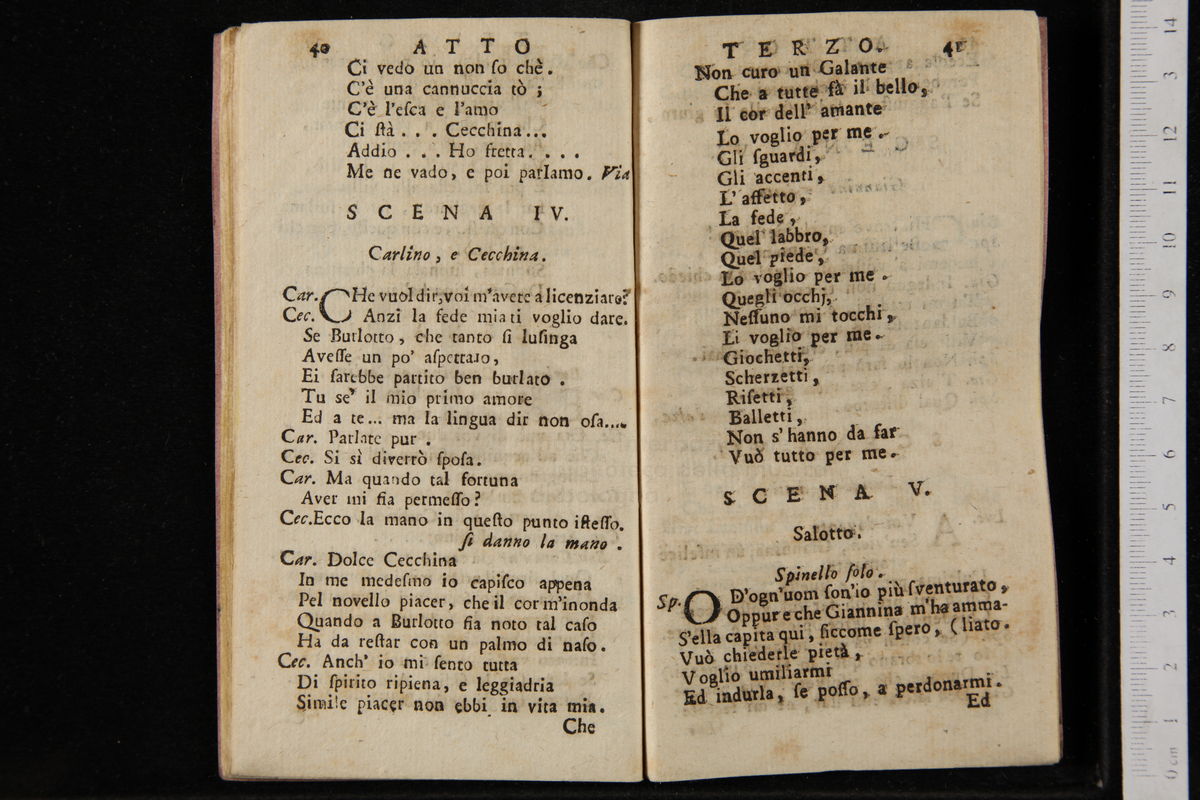 40 ATTO
Ci vedo un non ſo chè.
C'è una cannuccia tò ;
C'è l'eſca e l'amo
Ci ſtà . . . Cecchina...
Addio . . . Ho fretta. . . .
Me ne vado, e poi parlamo. Via
SCENA IV.
Carlino, e Cecchina.
Car. CHe vuol dir, voi m'avete a licenziare?
Cec. Anzi la fede mia ti voglio dare.
Se Burlotto, che tanto ſi luſinga
Aveſſe un po' aſpettato,
Ei ſarebbe partito ben burlato .
Tu se' il mio primo amore
Ed a te... ma la lingua dir non oſa....
Car. Parlate pur .
Cec. Si sì diverrò ſpoſa.
Car. Ma quando tal fortuna
Aver mi fia permeſſo?
Cec. Ecco la mano in queſto punto iſteſſo.
ſi danno la mano .
Car. Dolce Cecchina
In me medeſmo io capiſco appena
Pel novello piacer, che il cor m'inonda
Quando a Burlotto fia noto tal caſo
Ha da reſtar con un palmo di naſo.
Cec. Anch' io mi ſento tutta
Di ſpirito ripiena, e leggiadria
Simile piacer non ebbi in vita mia.
Che
TERZO. 41
Non curo un Galante
Che a tutte fà il bello,
Il cor dell' amante
Lo voglio per me.
Gli ſguardi,
Gli accenti,
L'affetto,
La fede,
Quel labbro,
Quel piede,
Lo voglio per me.
Quegli occhj,
Neſſuno mi tocchi,
Li voglio per me.
Giochetti,
Scherzetti,
Riſetti,
Balletti,
Non s'hanno da far
Vuò tutto per me.
SCENA V.
Salotto.
Spinello ſolo.
Sp. O D'ogn'uom ſon'io più ſventurato,
Oppur e che Giannina m'ha amma-
S'ella capita qui, ſiccome ſpero, (liato.
Vuò chiederle pietà,
Voglio umiliarmi
Ed indurla, ſe poſſo, a perdonarmi.
Ed
0 cm 1 2 3 4 5 6 7 8 9 10 11 12 3 14